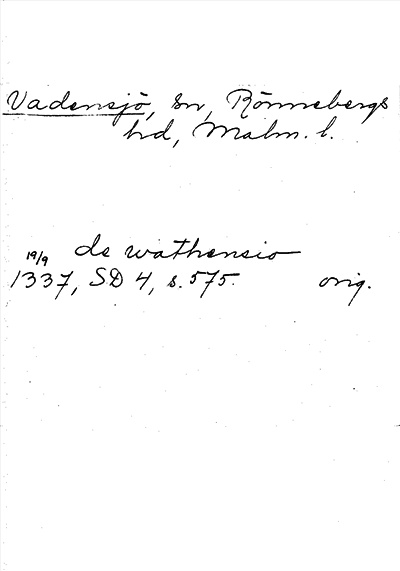 Vadensjö, sn, Rönnebergs
hd, Malm. l.
de wathensio
19/9
1337, SD 4, s. 575. orig.